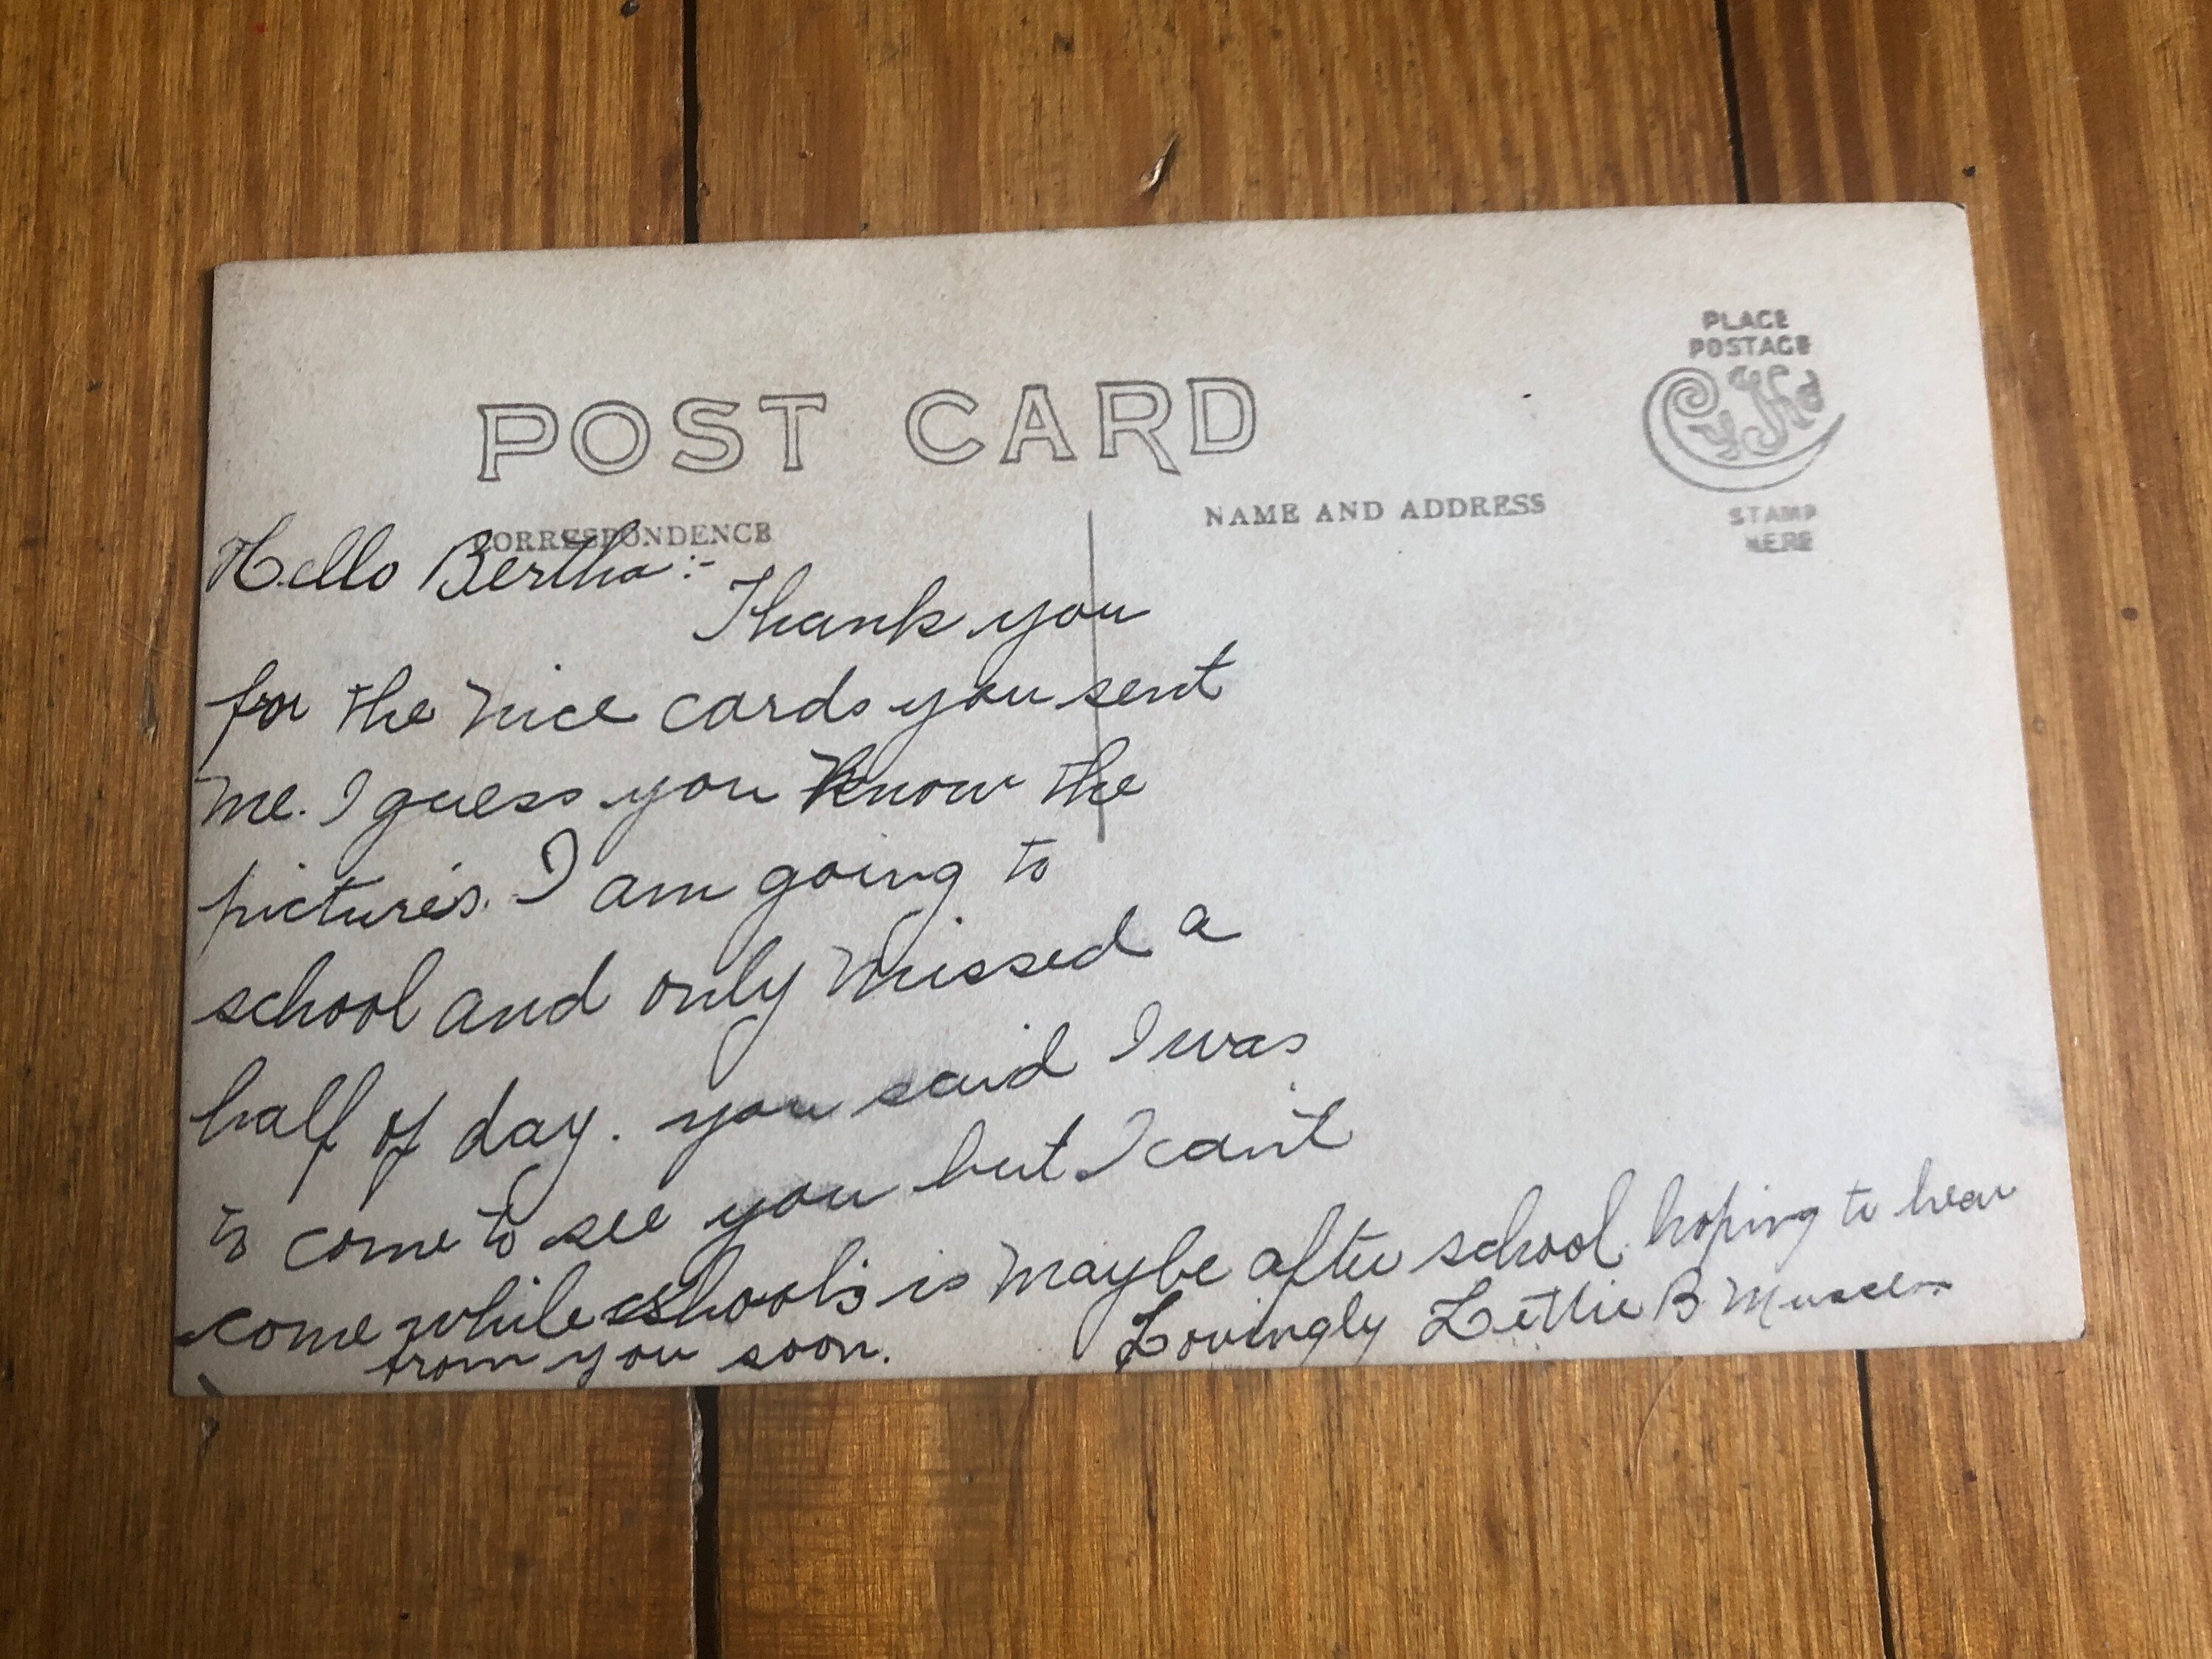 PLACE
POSTAGE
POST CARD
STAMP
HERE
CORRESPONDENCE
NAME AND ADDRESS
Hello Bertha:-
Thank you
for the nice cards you sent
me. I guess you know the
picture's. I am going to
school and only missed a
half of day. you said I was
to come to see you but I can't
come while school's is maybe after school. hoping to hear
from you soon.
Lovingly Lettie B